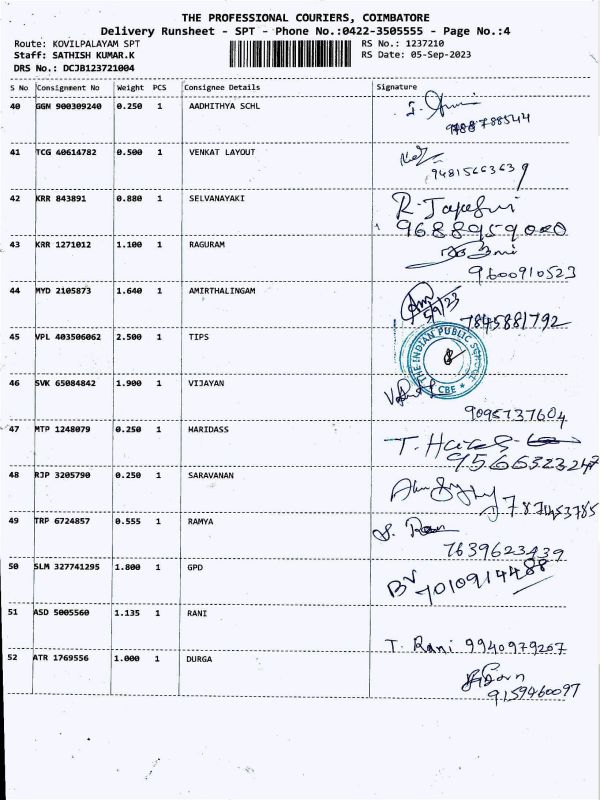 THE PROFESSIONAL COURIERS, COIMBATORE
Delivery Runsheet - SPT - Phone No.:0422-3505555 - Page No.:4
Route: KOVILPALAYAM SPT RS No.: 1237210
Staff: SATHISH KUMAR.K RS Date: 05-Sep-2023
DRS No.: DCJB123721004
S No Consignment No Weight PCS Consignee Details Signature
40 GGN 900309240 0.250 1 AADHITHYA SCHL
788544
41 TCG 40614782 0.500 1 VENKAT LAYOUT
94815663639
42 KRR 843891 0.880 1 SELVANAYAKI R.
9688959080
43 KRR 1271012 1.100 1 RAGURAM
9600910523
44 MYD 2105873 1.640 1 AMIRTHALINGAM
5/9/23
7845881792
45 VPL 403506062 2.500 1 TIPS
THE INDIAN PUBLIC SCHOOL
CBE
46 SVK 65084842 1.900 1 VIJAYAN
9095737604
47 MTP 1248079 0.250 1 HARIDASS T.
9566323247
48 RJP 3205790 0.250 1 SARAVANAN
7871453785
49 TRP 6724857 0.555 1 RAMYA
7639623439
50 SLM 327741295 1.800 1 GPD
7010914488
51 ASD 5005560 1.135 1 RANI
T. Rani 9940979207
52 ATR 1769556 1.000 1 DURGA
9159460097